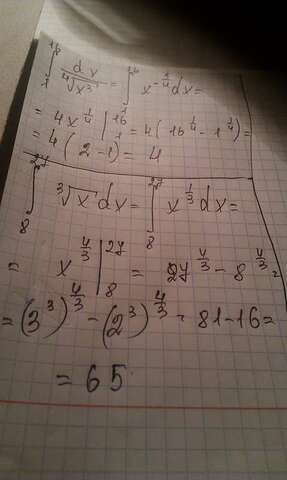 ∫₁¹⁶ dx/⁴√x³ = ∫₁¹⁶ x^(-3/4) dx =
= 4x^(1/4) |₁¹⁶ = 4(16^(1/4) - 1^(1/4)) =
= 4(2-1) = 4
∫₈²⁷ ³√x dx = ∫₈²⁷ x^(1/3) dx =
= x^(4/3) |₈²⁷ = 27^(4/3) - 8^(4/3) =
= (3³)^(4/3) - (2³)^(4/3) = 81-16 =
= 65